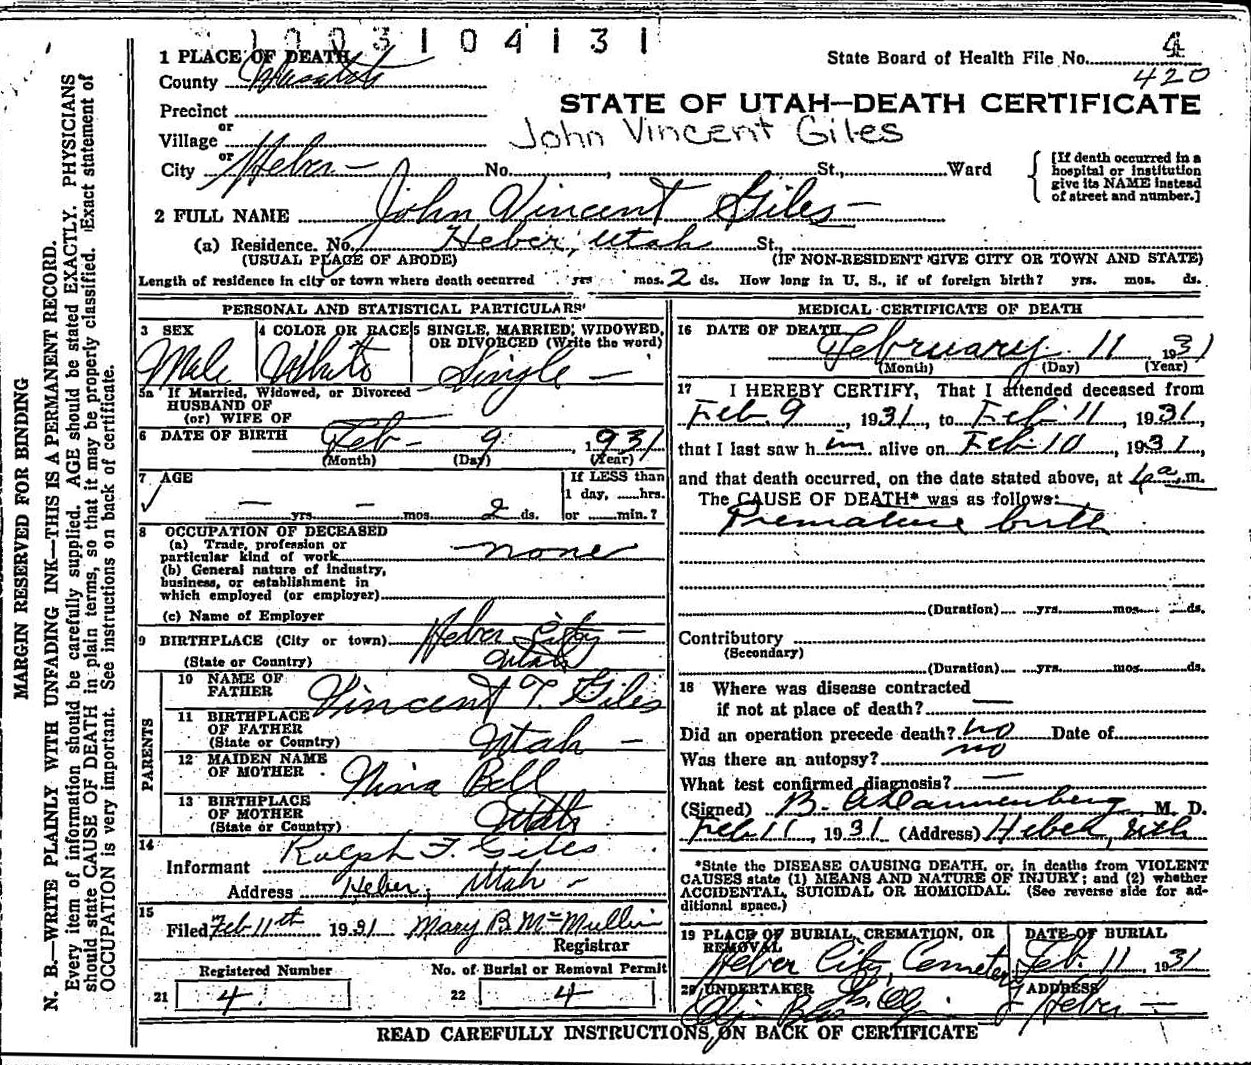 1003104131
1 PLACE OF DEATH
County Wasatch
State Board of Health File No. 4
420
Precinct
or
Village
STATE OF UTAH—DEATH CERTIFICATE
John Vincent Giles
or
City Heber — No. , St., Ward
[If death occurred in a hospital or institution give its NAME instead of street and number.]
2 FULL NAME John Vincent Giles —
(a) Residence. No. Heber, Utah St.,
(USUAL PLACE OF ABODE) (IF NON-RESIDENT GIVE CITY OR TOWN AND STATE)
Length of residence in city or town where death occurred yrs mos. 2 ds. How long in U. S., if of foreign birth? yrs. mos. ds.
PERSONAL AND STATISTICAL PARTICULARS
3 SEX
Male
4 COLOR OR RACE
White
5 SINGLE, MARRIED, WIDOWED,
OR DIVORCED (Write the word)
Single —
5a If Married, Widowed, or Divorced
HUSBAND OF
(or) WIFE OF
6 DATE OF BIRTH Feb — 9 , 1931
(Month) (Day) (Year)
7 AGE
— yrs. — mos. 2 ds.
If LESS than
1 day, hrs.
or min.?
8 OCCUPATION OF DECEASED
(a) Trade, profession or
particular kind of work none
(b) General nature of industry,
business, or establishment in
which employed (or employer)
(c) Name of Employer
9 BIRTHPLACE (City or town) Heber City —
(State or Country) Utah
PARENTS
10 NAME OF
FATHER Vincent T. Giles
11 BIRTHPLACE
OF FATHER
(State or Country) Utah —
12 MAIDEN NAME
OF MOTHER Nina Bell
13 BIRTHPLACE
OF MOTHER
(State or Country) Utah
14
Informant Ralph F. Giles
Address Heber, Utah —
15
Filed Feb 11th 1931 Mary B. McMullin
Registrar
Registered Number
21 4
No. of Burial or Removal Permit
22 4
MEDICAL CERTIFICATE OF DEATH
16 DATE OF DEATH
February 11 1931
(Month) (Day) (Year)
17 I HEREBY CERTIFY, That I attended deceased from
Feb. 9 , 1931, to Feb. 11 , 1931.
that I last saw h im alive on Feb 10 , 1931,
and that death occurred, on the date stated above, at 4 a. m.
The CAUSE OF DEATH* was as follows:
Premature birth
(Duration) yrs. mos. ds.
Contributory
(Secondary)
(Duration) yrs. mos. ds.
18 Where was disease contracted
if not at place of death? —
Did an operation precede death? no Date of
Was there an autopsy? no
What test confirmed diagnosis? —
(Signed) B. A. Dannenberg M. D.
Feb 11, 1931 (Address) Heber, Utah
*State the DISEASE CAUSING DEATH, or, in deaths from VIOLENT
CAUSES state (1) MEANS AND NATURE OF INJURY; and (2) whether
ACCIDENTAL, SUICIDAL OR HOMICIDAL. (See reverse side for ad-
ditional space.)
19 PLACE OF BURIAL, CREMATION, OR
REMOVAL
Heber City Cemetery
DATE OF BURIAL
Feb. 11 1931
20 UNDERTAKER
ADDRESS
Heber —
READ CAREFULLY INSTRUCTIONS ON BACK OF CERTIFICATE
MARGIN RESERVED FOR BINDING
N. B.—WRITE PLAINLY WITH UNFADING INK—THIS IS A PERMANENT RECORD.
Every item of information should be carefully supplied. AGE should be stated EXACTLY. PHYSICIANS
should state CAUSE OF DEATH in plain terms, so that it may be properly classified. Exact statement of
OCCUPATION is very important. See instructions on back of certificate.